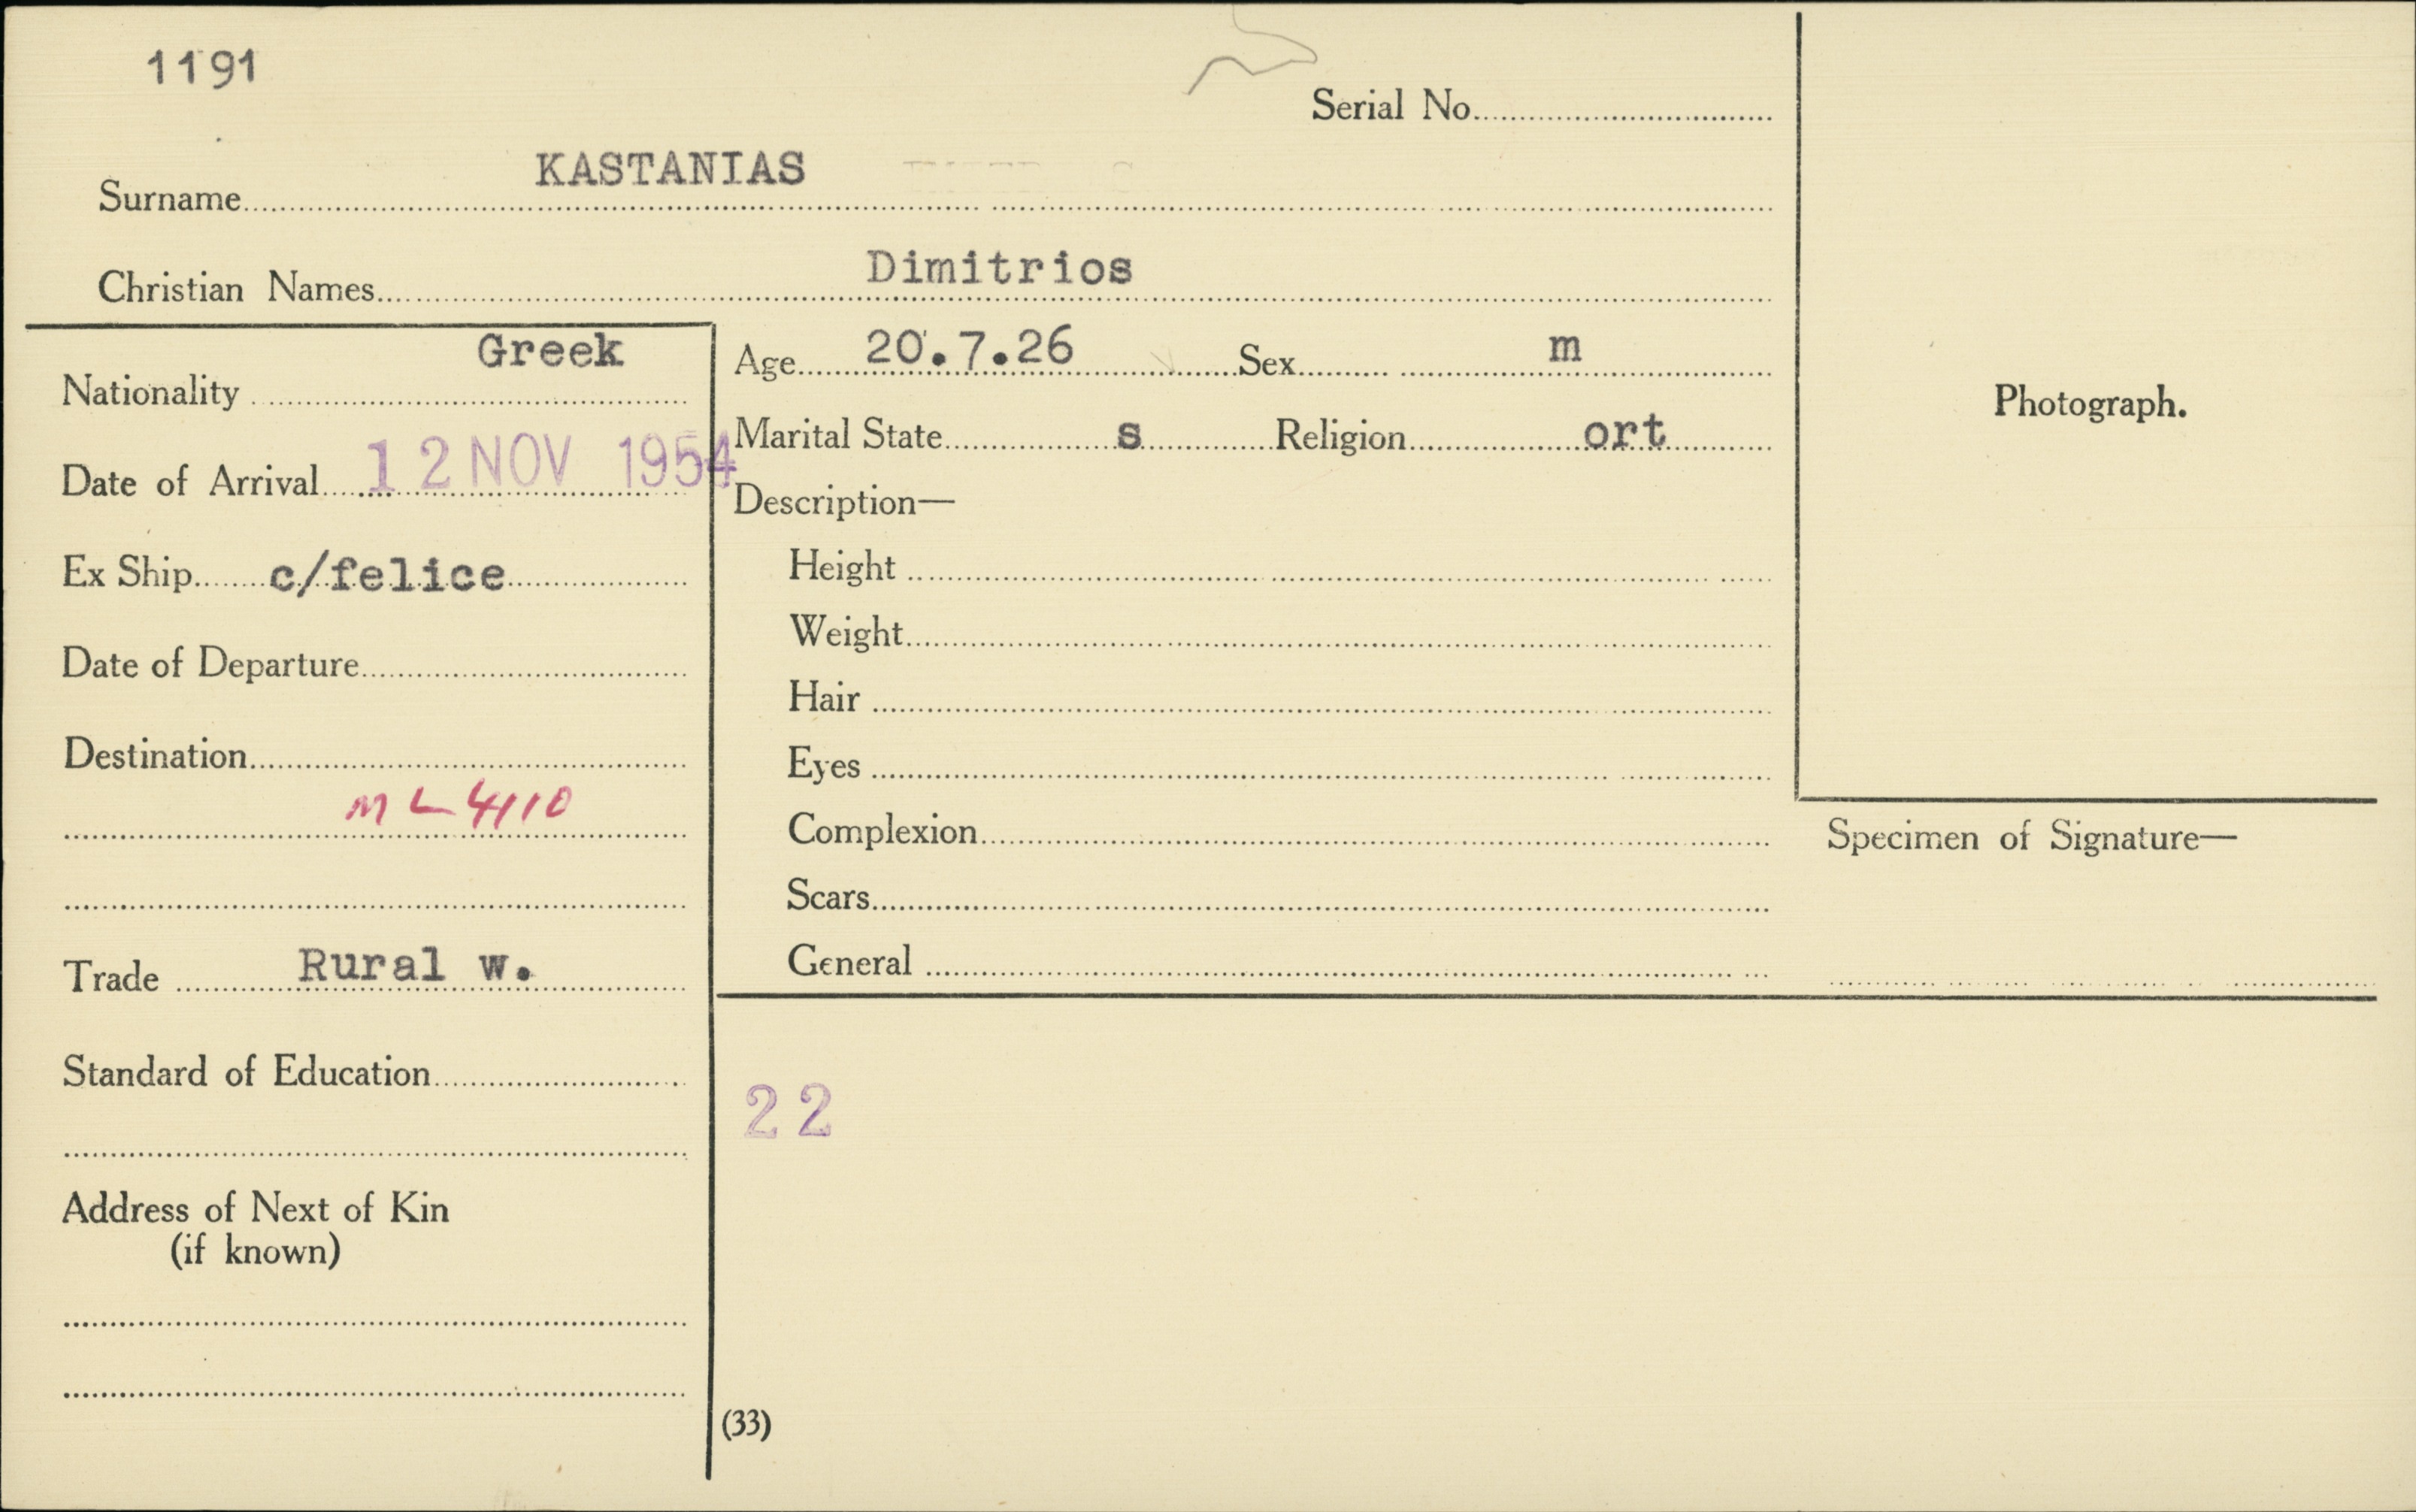 1191
Serial No.
Surname KASTANIAS
Christian Names Dimitrios
Nationality Greek
Date of Arrival 12 NOV 1954
Ex Ship c/felice
Date of Departure
Destination
ML 4110
Trade Rural w.
Standard of Education
Address of Next of Kin
(if known)
Age 20.7.26 Sex m
Marital State s Religion ort
Description—
Height
Weight
Hair
Eyes
Complexion
Scars
General
Photograph.
Specimen of Signature—
22
(33)